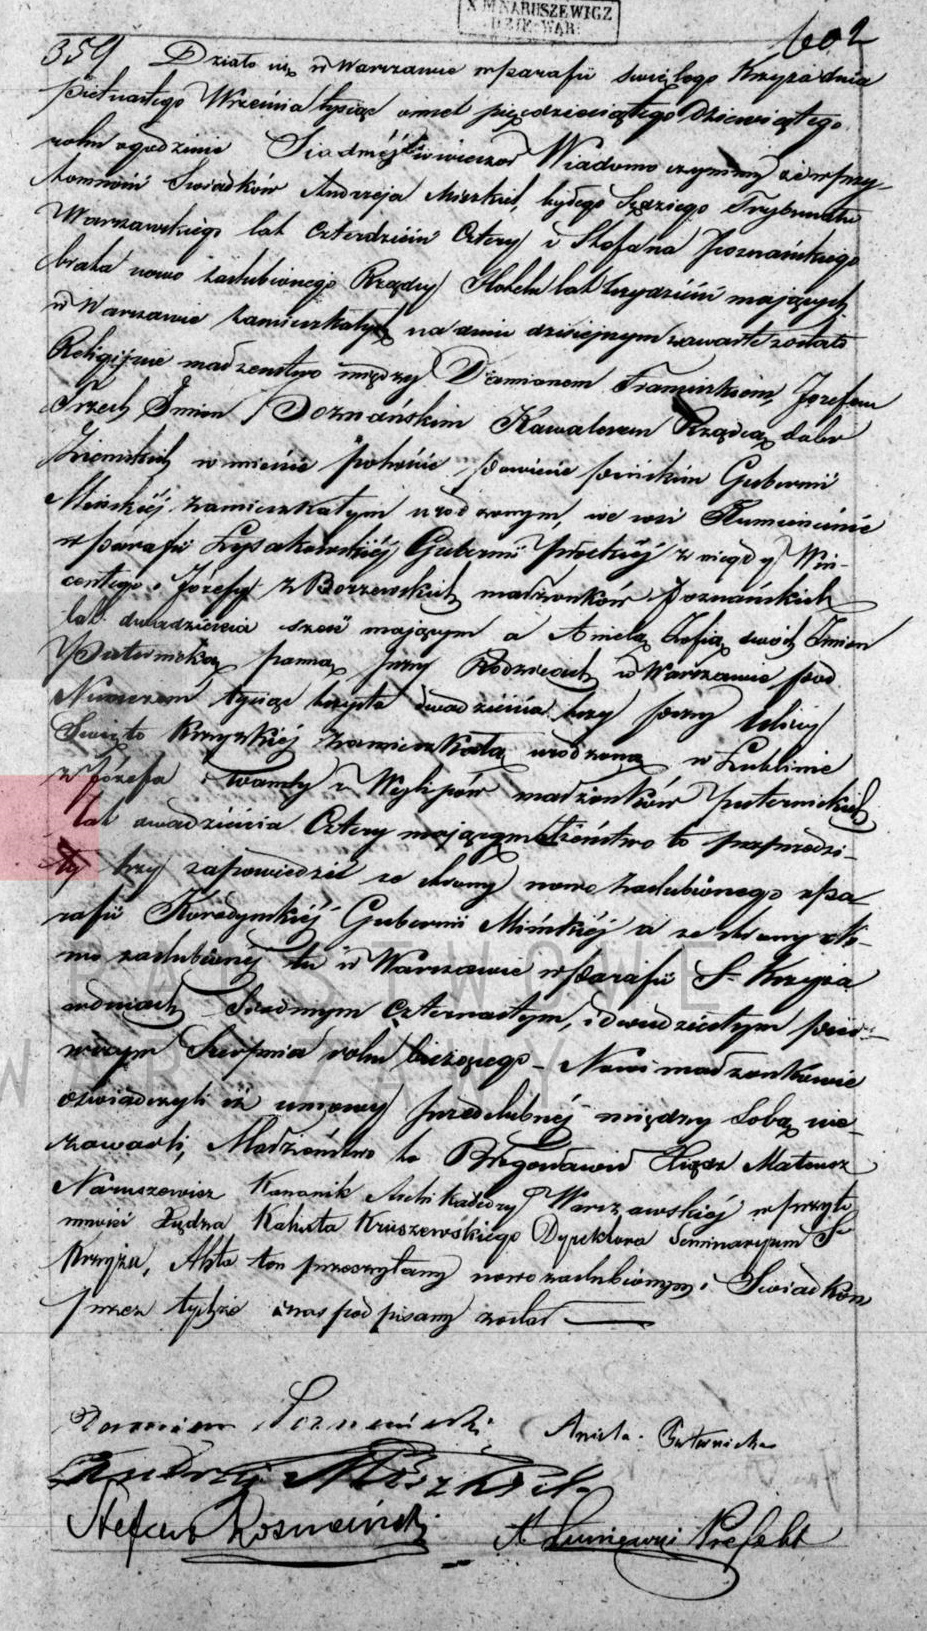 X M NARUSZEWICZ
DZIEK: WAR:
602
359 Działo się w Warszawie w parafii świętego Krzyża dnia
piętnastego Września tysiąc ośmset pięćdziesiątego Dziewiątego
roku o godzinie Siódméj wieczór Wiadomo czynimy że w przy-
tomności Świadków Andrzeja byłego Sędziego Trybunału
Warszawskiego lat Czterdzieści Cztery i Stefana Poznańskiego
brata nowo zaślubionego Rządcy Hotelu lat trzydzieści mających
w Warszawie zamieszkałych na dniu dzisiejszym zawarte zostało
Religijnie małżeństwo między Damianem Franciszkiem, Józefem
Trzech Imion Poznańskim Kawalerem Rządcą dóbr
Ziemskich w mieście powiecie Pińskim Gubernii
Mińskiéj zamieszkałym urodzonym, we wsi
w parafii Łysakowskiéj Gubernii Płockiéj z niegdy Win-
centego i Józefy z Borzewskich małżonków Poznańskich
lat dwadzieścia sześć mającym a Anielą Zofią dwóch Imion
Puternicką panną przy Rodzicach w Warszawie pod
Numerem tysiąc trzysta dwadzieścia trzy przy Ulicy
Święto Krzyzkiéj zamieszkałą urodzoną w Lublinie
z Józefa i Wandy z małżonków Puternickich
lat dwadzieścia Cztery mającą małżeństwo to poprzedzi-
ły trzy zapowiedzie ze strony nowo zaślubionego w pa-
rafii Gubernii Mińskiéj a ze strony no-
wo zaślubionéj tu w Warszawie w parafii Sgo Krzyża
w dniach Siódmym czternastym, i dwudziestym pier-
wszym Sierpnia roku bieżącego – Nowi małżonkowie
oświadczyli iż umowy przedślubnéj między sobą nie-
zawarli, Małżeństwo to Błogosławił Xiądz Mateusz
Naruszewicz Kanonik Archikatedry Warszawskiéj w przyto-
mności Xiędza Kalixta Kruszewskiego Dyrektora Seminaryum Sgo
Krzyża, Akt ten przeczytany nowozaślubionym i Świadkom
przez tychże i nas podpisany został
Damian Poznański Aniela Puternicka
Andrzej
Stefan Poznański Prefekt
PAŃSTWOWE
WARSZAWY